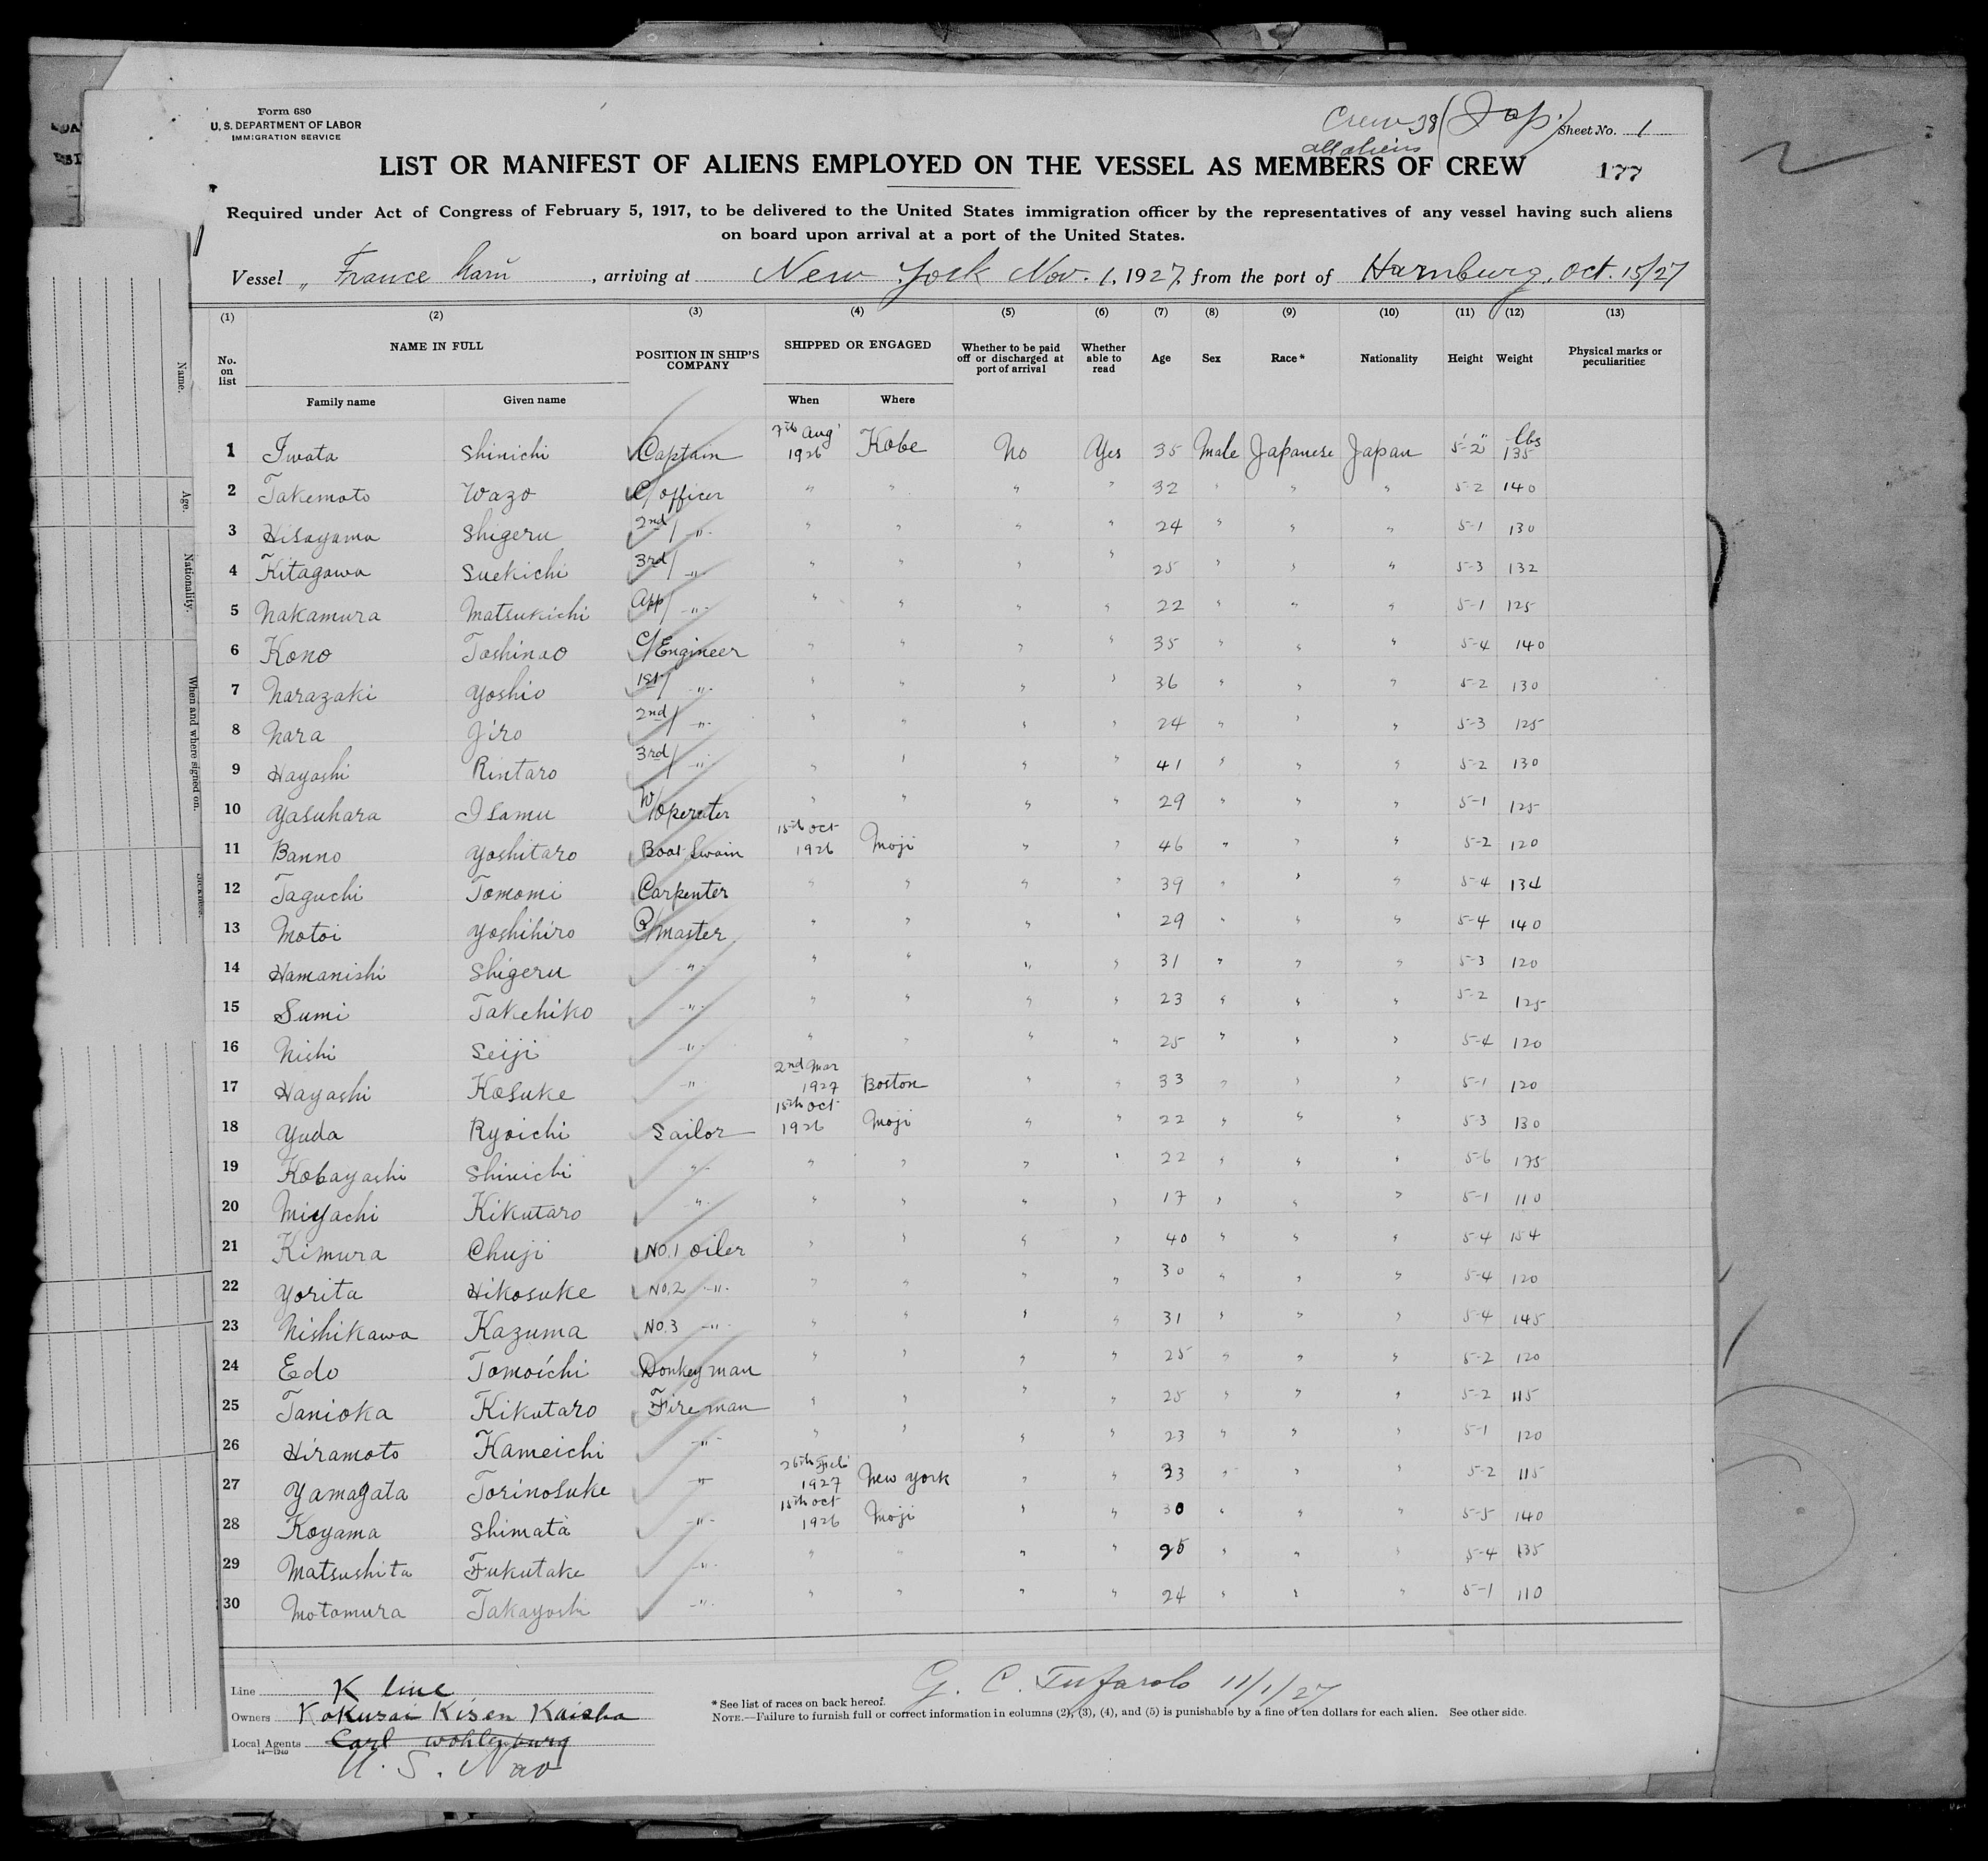 Form 680
U. S. DEPARTMENT OF LABOR
IMMIGRATION SERVICE
Crew 38 (Jap.)
all aliens
Sheet No. 1
LIST OR MANIFEST OF ALIENS EMPLOYED ON THE VESSEL AS MEMBERS OF CREW
177
Required under Act of Congress of February 5, 1917, to be delivered to the United States immigration officer by the representatives of any vessel having such aliens
on board upon arrival at a port of the United States.
Vessel „ France Maru , arriving at New York Nov. 1, 1927, from the port of Hamburg, Oct. 15/27
(1) (2) (3) (4) (5) (6) (7) (8) (9) (10) (11) (12) (13)
No. on list NAME IN FULL POSITION IN SHIP'S COMPANY SHIPPED OR ENGAGED Whether to be paid off or discharged at port of arrival Whether able to read Age Sex Race* Nationality Height Weight Physical marks or peculiarities
Family name Given name When Where
1 Iwata Shinichi Captain 7th Aug' 1926 Kobe No Yes 35 Male Japanese Japan 5'-2" lbs 135
2 Takemoto Wazo C/officer " " " " 32 " " " 5-2 140
3 Hisayama Shigeru 2nd/ -"- " " " " 24 " " " 5-1 130
4 Kitagawa Suekichi 3rd/ -"- " " " " 25 " " " 5-3 132
5 Nakamura Matsukichi App/ -"- " " " " 22 " " " 5-1 125
6 Kono Toshinao C/Engineer " " " " 35 " " " 5-4 140
7 Narazaki Yoshio 1st/ -"- " " " " 36 " " " 5-2 130
8 Nara Jiro 2nd/ -"- " " " " 24 " " " 5-3 125
9 Hayashi Rintaro 3rd/ -"- " " " " 41 " " " 5-2 130
10 Yasuhara Isamu W/operater " " " " 29 " " " 5-1 125
11 Banno Yoshitaro Boat Swain 15th Oct 1926 Moji " " 46 " " " 5-2 120
12 Taguchi Tomomi Carpenter " " " " 39 " " " 5-4 134
13 Motoi Yoshihiro Q/master " " " " 29 " " " 5-4 140
14 Hamanishi Shigeru -"- " " " " 31 " " " 5-3 120
15 Sumi Takehiko -"- " " " " 23 " " " 5-2 125
16 Nishi Seiji -"- " " " " 25 " " " 5-4 120
17 Hayashi Kosuke -"- 2nd Mar 1927 Boston " " 33 " " " 5-1 120
18 Yuda Ryoichi Sailor 15th Oct 1926 Moji " " 22 " " " 5-3 130
19 Kobayashi Shinichi -"- " " " " 22 " " " 5-6 175
20 Miyachi Kikutaro -"- " " " " 17 " " " 5-1 110
21 Kimura Chuji No.1 oiler " " " " 40 " " " 5-4 154
22 Yorita Hikosuke No.2 -"- " " " " 30 " " " 5-4 120
23 Nishikawa Kazuma No.3 -"- " " " " 31 " " " 5-4 145
24 Edo Tomoichi Donkey man " " " " 25 " " " 5-2 120
25 Tanioka Kikutaro Fire man " " " " 25 " " " 5-2 115
26 Hiramoto Kameichi -"- " " " " 23 " " " 5-1 120
27 Yamagata Torinosuke -"- 26th Feb' 1927 New York " " 33 " " " 5-2 115
28 Koyama Shimata -"- 15th Oct 1926 Moji " " 30 " " " 5-5 140
29 Matsushita Fukutake -"- " " " " 25 " " " 5-4 135
30 Motomura Takayoshi -"- " " " " 24 " " " 5-1 110
Line K line
Owners Kokusai Kisen Kaisha
Local Agents Carl Wohlenburg
14—1240
U. S. Nav
G. C. Tufarolo 11/1/27
* See list of races on back hereof.
NOTE.—Failure to furnish full or correct information in columns (2), (3), (4), and (5) is punishable by a fine of ten dollars for each alien. See other side.
Name.
Age.
Nationality.
When and where signed on.